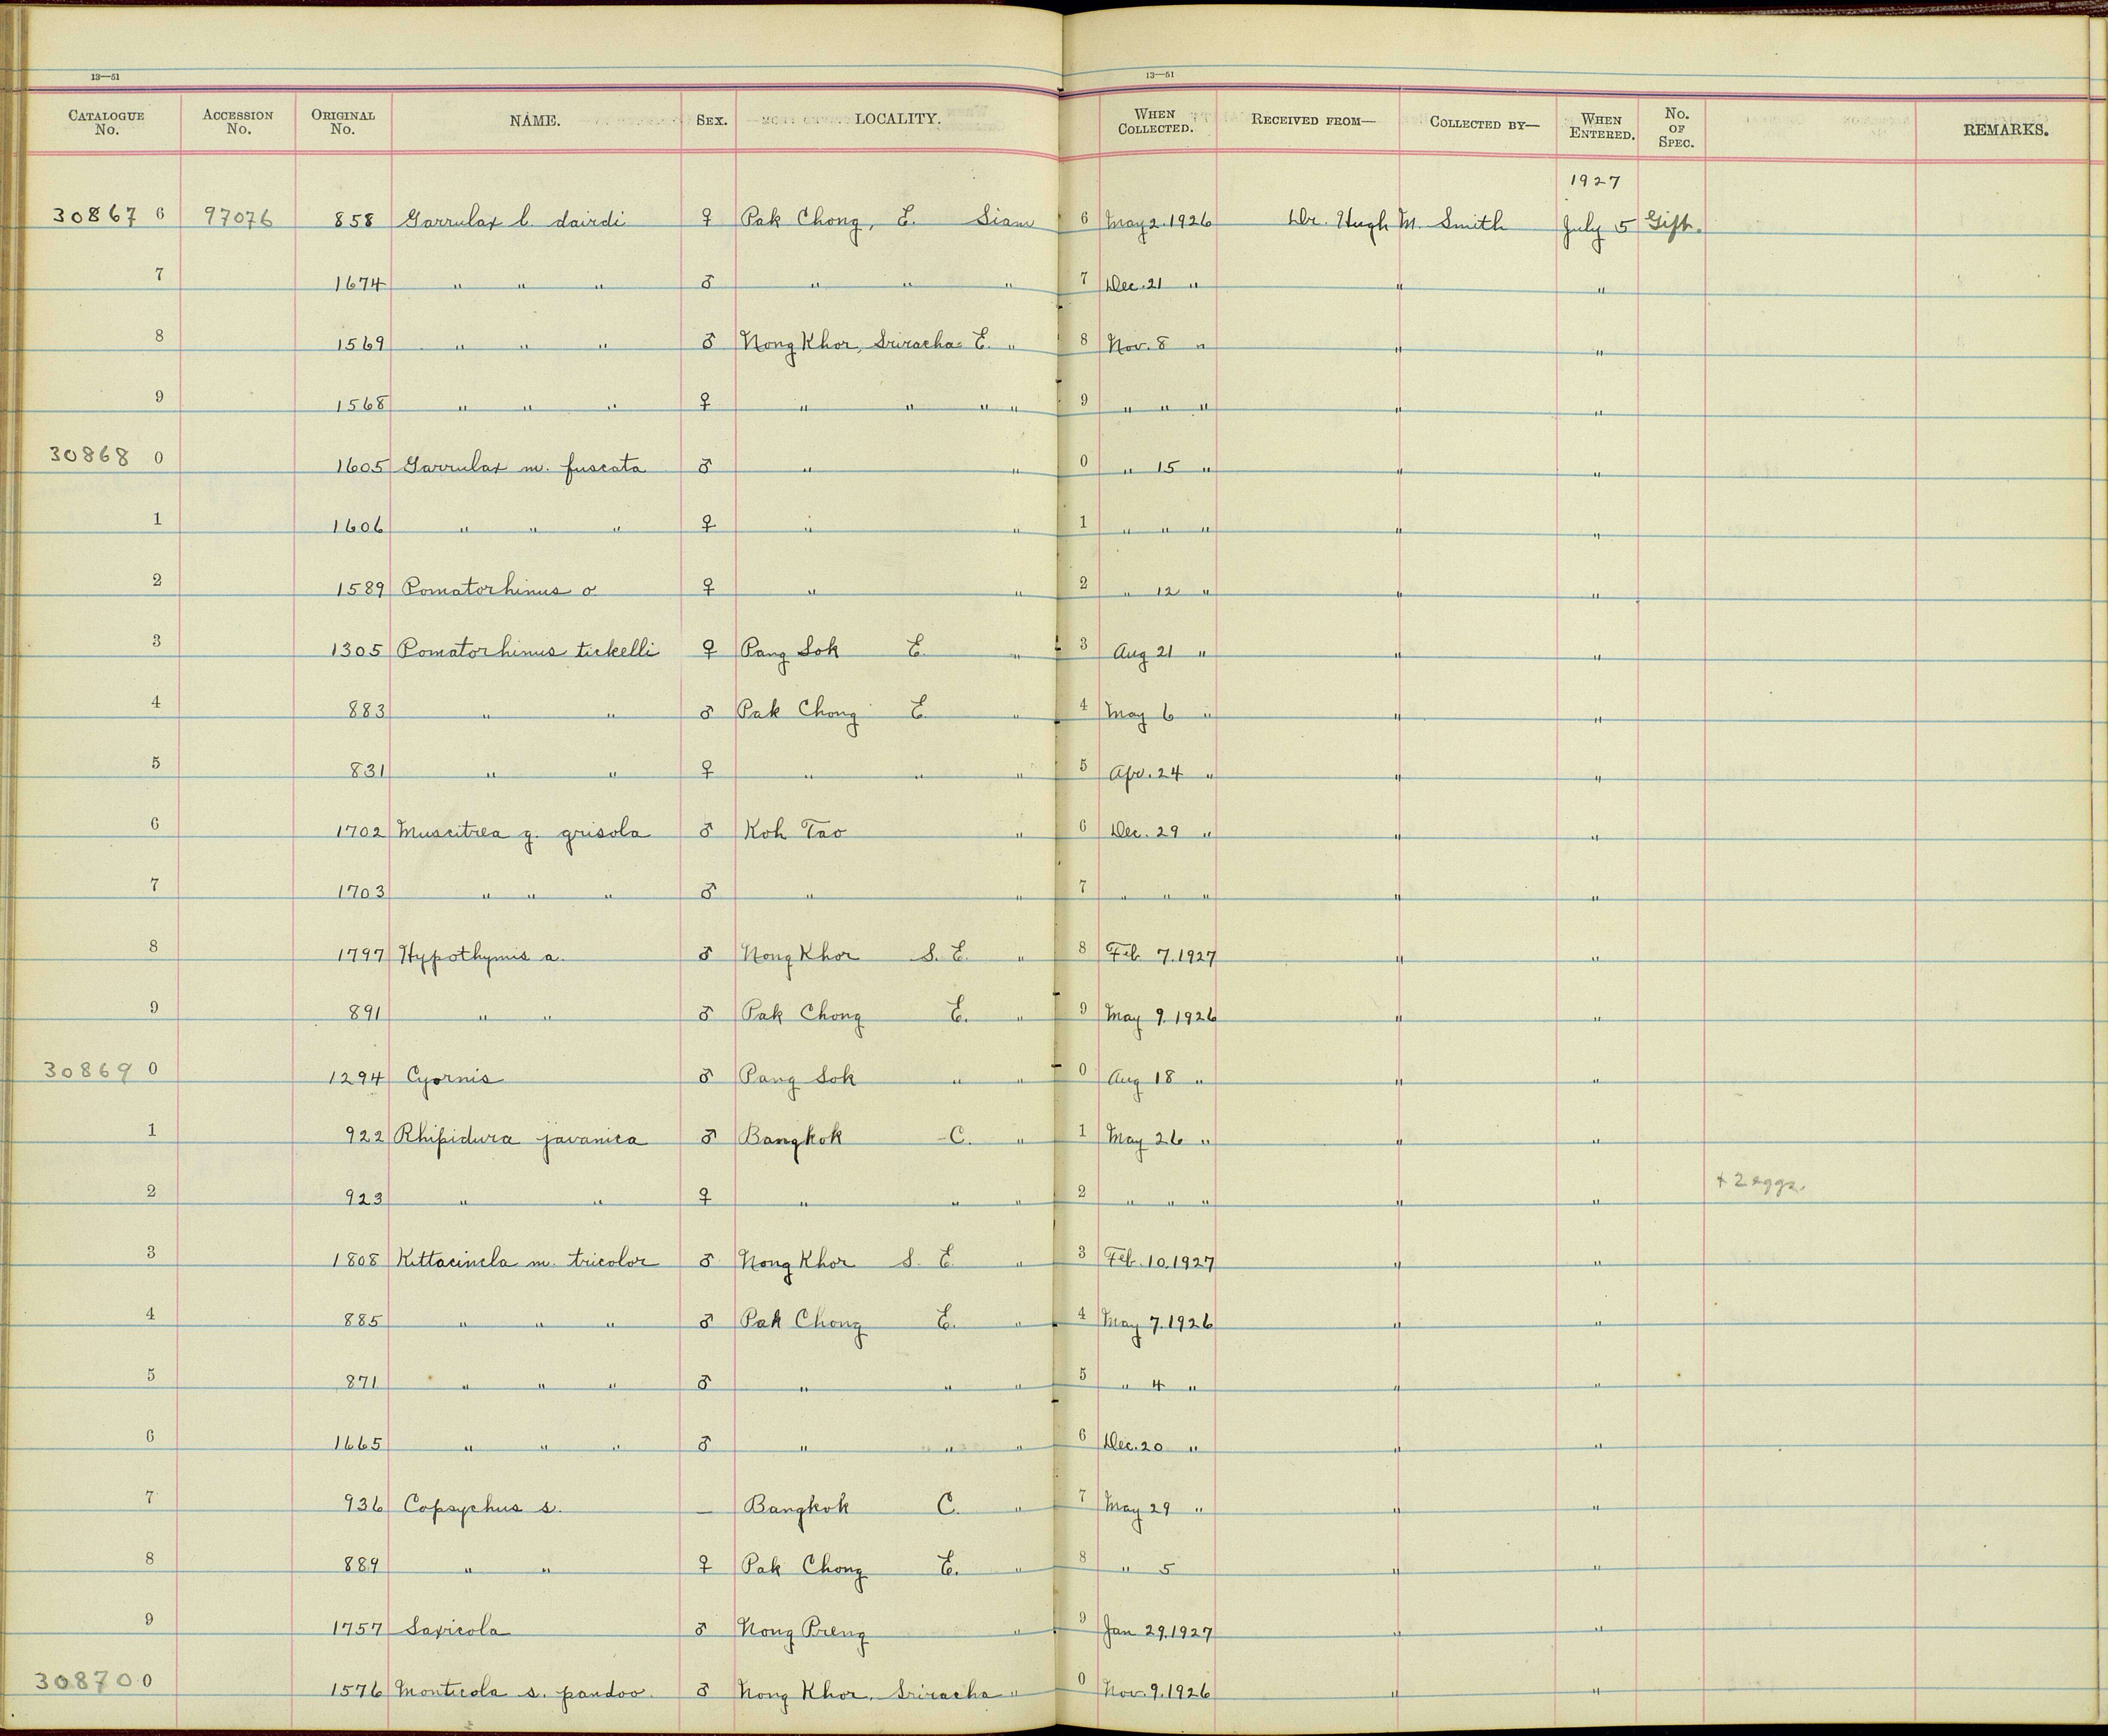 13—51 13—51
CATALOGUE No. ACCESSION No. ORIGINAL No. NAME. SEX. LOCALITY. WHEN COLLECTED. RECEIVED FROM— COLLECTED BY— WHEN ENTERED. No. OF SPEC. REMARKS.
1927
30867 6 97076 858 Garrulax l. dairdi ♀ Pak Chong, E. Siam 6 May 2. 1926 Dr. Hugh M. Smith July 5 Gift.
7 1674 " " " ♂ " " " 7 Dec. 21 " " "
8 1569 " " " ♂ Nong Khor, Sriracha E. " 8 Nov. 8 " " "
9 1568 " " " ♀ " " " " 9 " " " " "
30868 0 1605 Garrulax m. fuscata ♂ " " 0 " 15 " " "
1 1606 " " " ♀ " " 1 " " " " "
2 1589 Pomatorhinus o. ♀ " " 2 " 12 " " "
3 1305 Pomatorhinus tickelli ♀ Pang Sok E. " 3 Aug 21 " " "
4 883 " " ♂ Pak Chong E. " 4 May 6 " " "
5 831 " " ♀ " " " 5 Apr. 24 " " "
6 1702 Muscitrea g. grisola ♂ Koh Tao " 6 Dec. 29 " " "
7 1703 " " " ♂ " " 7 " " " " "
8 1797 Hypothymis a. ♂ Nong Khor S. E. " 8 Feb 7. 1927 " "
9 891 " " ♂ Pak Chong E. " 9 May 9. 1926 " "
30869 0 1294 Cyornis ♂ Pang Sok " " 0 Aug 18 " " "
1 922 Rhipidura javanica ♂ Bangkok C. " 1 May 26 " " "
2 923 " " ♀ " " " 2 " " " " " + 2 eggs.
3 1808 Kittacincla m. tricolor ♂ Nong Khor S. E. " 3 Feb. 10. 1927 " "
4 885 " " " ♂ Pak Chong E. " 4 May 7. 1926 " "
5 871 " " " ♂ " " " 5 " 4 " " "
6 1665 " " " ♂ " " " 6 Dec. 20 " " "
7 936 Copsychus s. — Bangkok C. " 7 May 29 " " "
8 889 " " ♀ Pak Chong E. " 8 " 5 " "
9 1757 Saxicola ♂ Nong Preng " 9 Jan 29. 1927 " "
30870 0 1576 Monticola s. pandoo. ♂ Nong Khor, Sriracha " 0 Nov. 9. 1926 " "